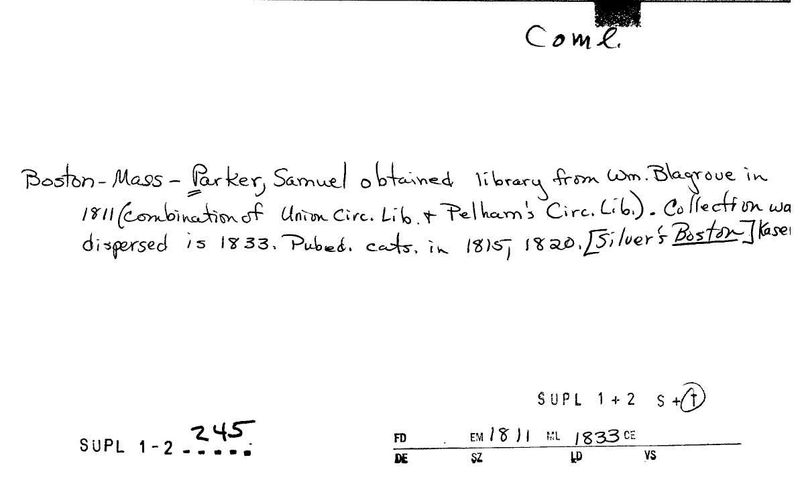 Coml.
Boston-Mass - Parker, Samuel obtained library from Wm. Blagrove in
1811 (combination of Union Circ. Lib. + Pelham's Circ. Lib.). Collection wa
dispersed is 1833. Pubed. cats. in 1815, 1820. [Silver's Boston] Kaser
SUPL 1 + 2 S + T
SUPL 1-2 245
FD EM 1811 ML 1833 CE
DE SZ LD VS